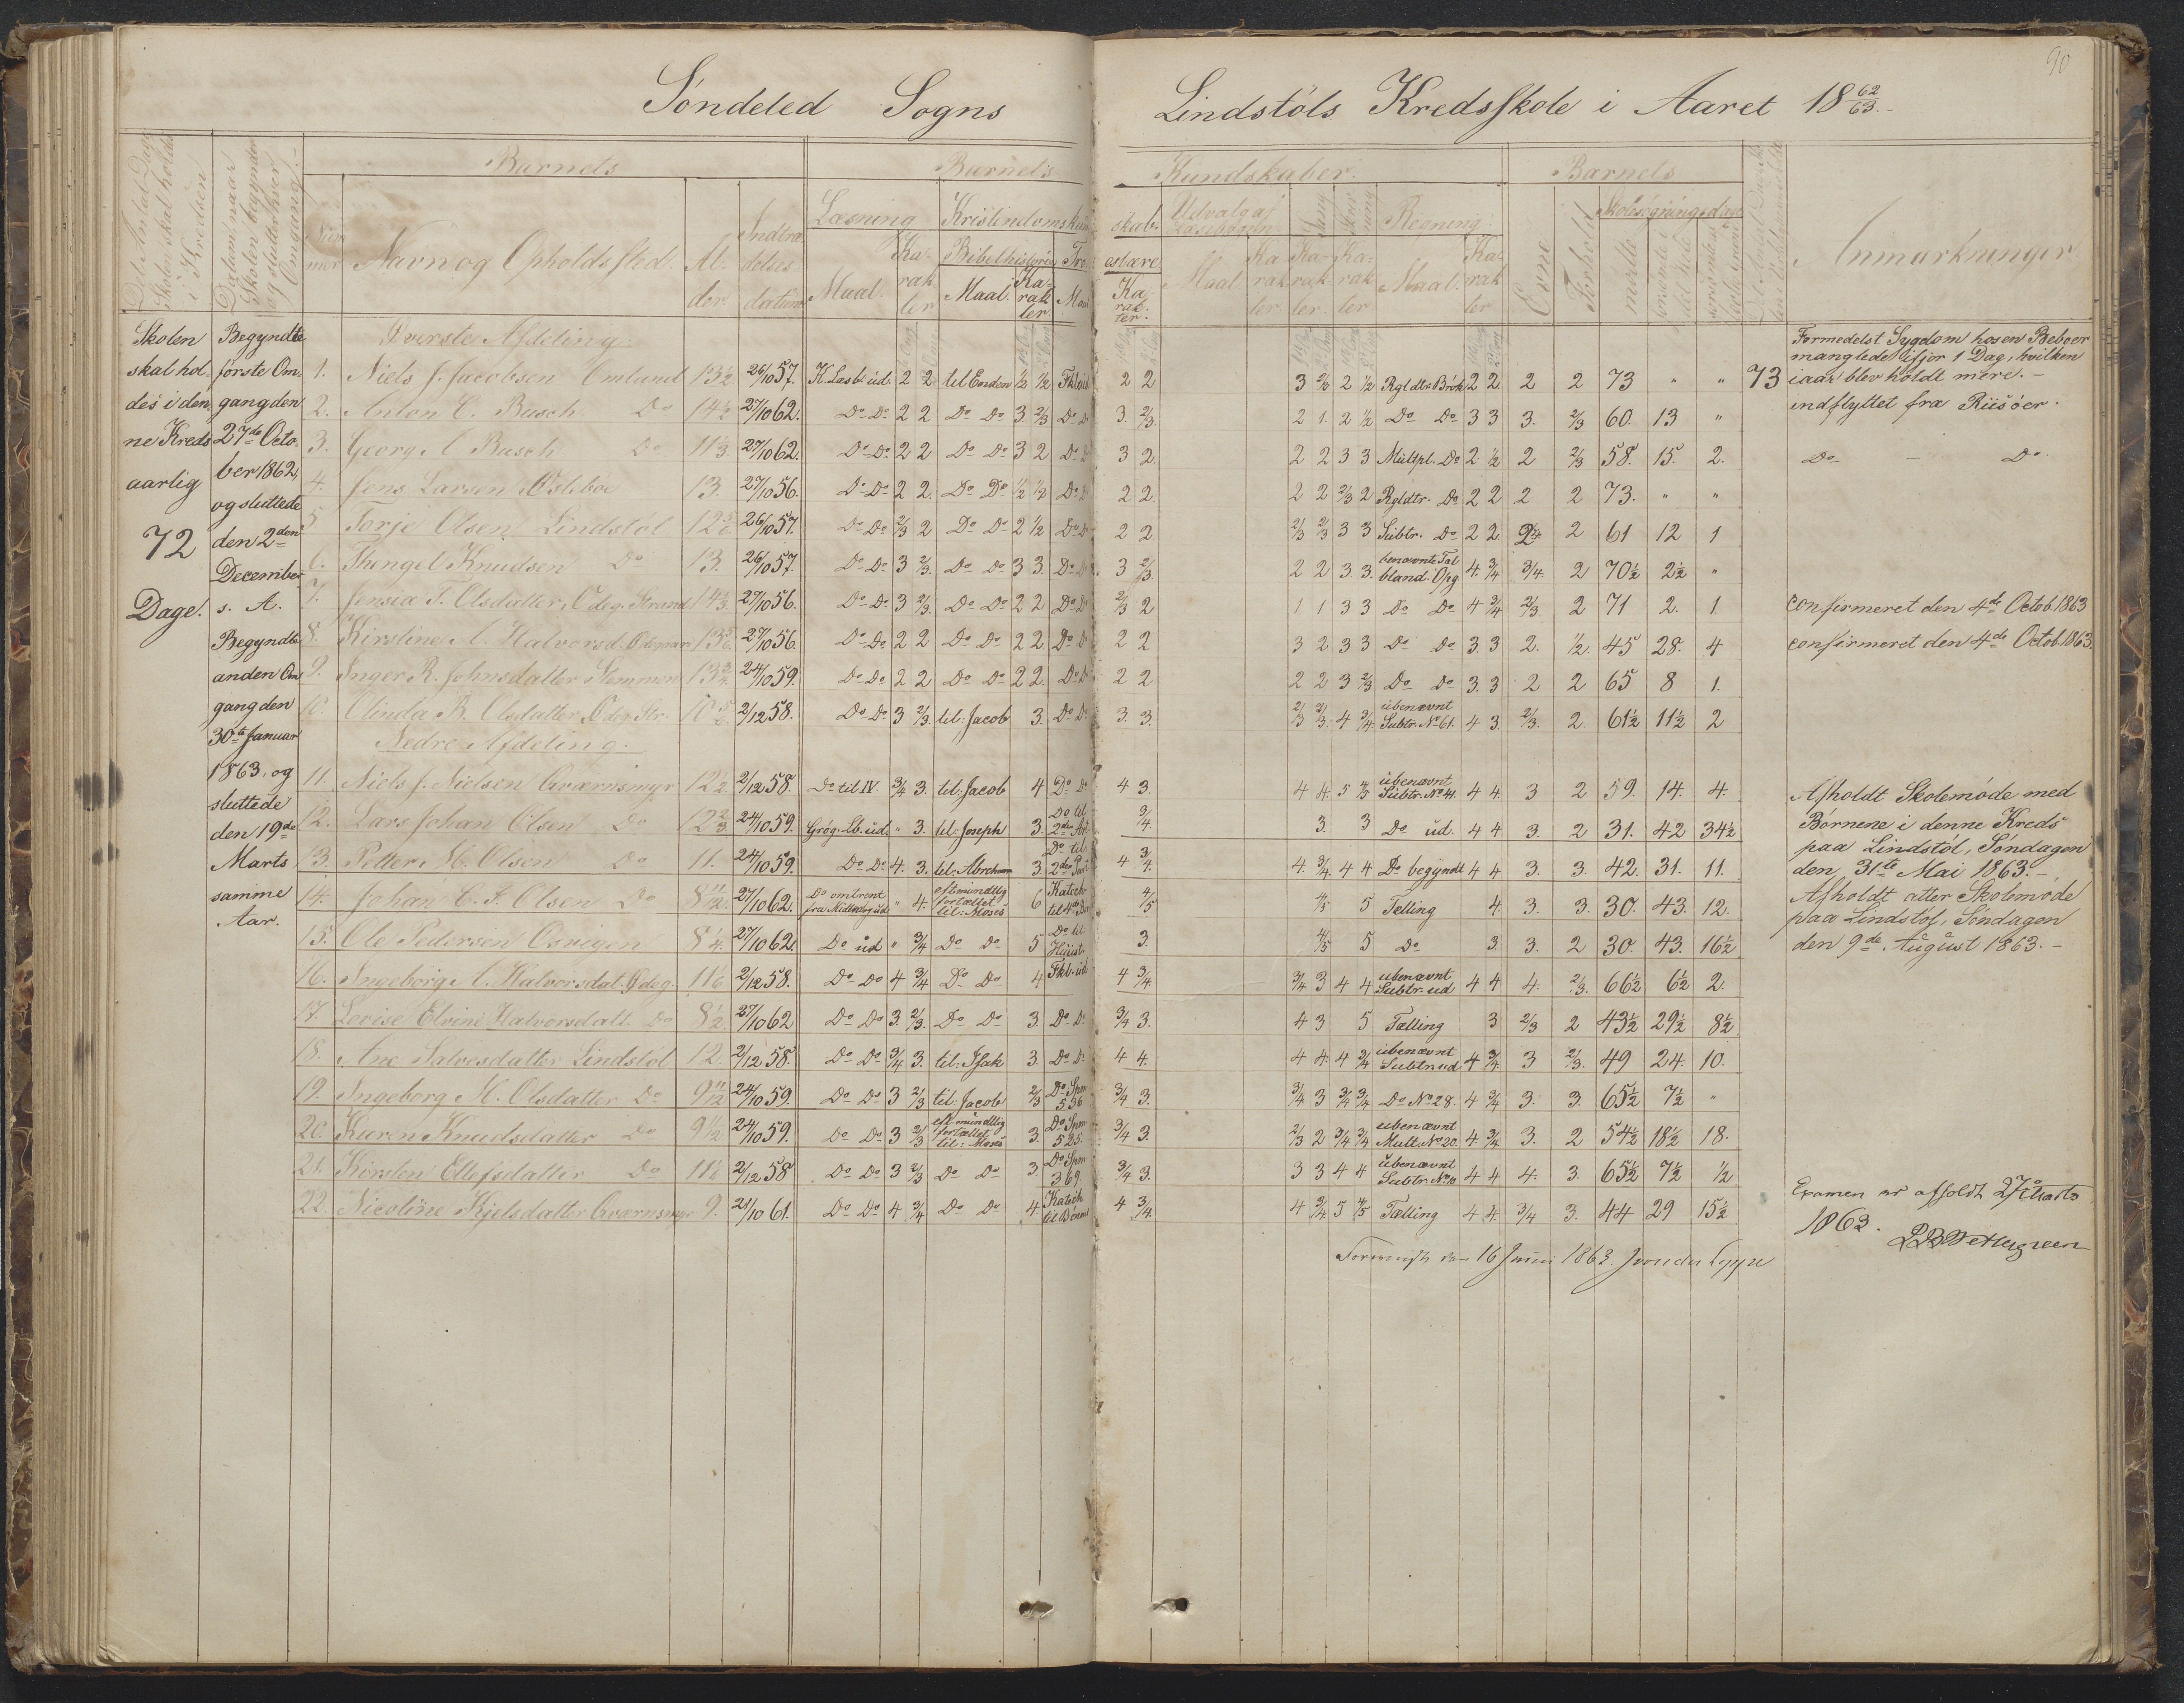 90
Söndeled Sogns Lindstöls Kredsskole i Aaret 18 62/63.
Barnets Barnets Kundskaber. Barnets
Læsning Kristindomskundskab Udvalg af Læsebogen Sang Skrivning Regning Skolesøgningsdage
Nummer Navn og Opholdssted. Alder. Indtrædelsesdatum Maal. Karakter Bibelhistorie Troeslære Maal. Karakter Maal Karakter. Maal Karakter. Karakter. Karakter Maal. Karakter Evne Forhold mødte Anmærkninger
Skolen skal holdes i denne Kreds aarlig 72 Dage.
Begyndte første Omgang den 27de October 1862, og sluttede den 2den December s. A.
Begyndte anden Omgang den 30te Januar 1863, og sluttede den 19de Marts samme Aar.
Øverste Afdeling.
1. Niels J. Jacobsen Omlund 13½ 26/10 57. K. Læsb. ud. 2 2 til Enden ½ ½ Fkl. ud 2 2 3 2 ½ Rgldtr. Brök 2 2 2 2 73 " " 73
2. Anton C. Busch Do 27/10 62. Do Do 2 2 Do Do 3 2/3 Do Do 3. 2/3. 2 1. 2 ½ Do Do 3 3 3. 2/3 60. 13 "
3. Georg A Busch Do 11 27/10 62. Do Do 2 2 Do Do 3 2 Do Do 3 2. 2 2 3 3 Multpl. Do 2 ½ 2 2/3 58. 15. 2.
4. Jens Larsen Østeboe 13. 27/10 56. Do Do 2 2. Do Do ½ ½ Do Do 2 2 2 2 2/3 2 Rgldtr. Do 2 2 2 2 73. " "
5. Torje Olsen Lindstöl 12 26/10 57. Do Do 2/3 2 Do Do 2 ½ Do Do 2 2 2/3 2/3 3 3 Subtr. Do 2 2 2 61 12 1
6. Thengel Knudsen Do 13. 26/10 57. Do Do 3 2/3. Do Do 3 3. Do Do 3 2/3. 2 2 3 3. benævnte Tal bland. Opg. 4. 3/4 3/4. 2 70½ 2½ "
7. Jensia T. Olsdatter, Ødeg. Strand 14 27/10 56. Do Do 3 2/3. Do Do 2 2 Do Do 2/3 2 1 1 3 3 Do Do 4 3/4 2/3. 2 71 2. 1.
8. Kirstine A. Halvorsd. 13 27/10 56. Do Do 2 2 Do Do 2 2. Do Do 2 2 3 2 3 3 Do Do 3. 3 2. ½. 45 28. 4
9. Inger R. Johnsdatter Stemmen 13 24/10 59. Do Do 2 2 Do Do 2 2. Do Do 2 2 2 2 3 2/3 Do Do 3. 3 2 2 65 8 1.
10. Olinda B. Olsdatter, Ødeg. Str. 10 2/12 58. Do Do 3 2/3. til: Jacob 3. Do Do 3. 3. 2/3 2/3. 4 3/4. ubenævnt Subtr. No 61. 4 3. 2/3. 2. 61½ 11½ 2
Nedre Afdeling.
11. Niels J. Nielsen Qværnsmyr 12½ 2/12 58. Do til IV. 3/4 3. til: Jacob 4 Do Do 4 3. 4 4. 5 4/5 ubenævnt Subtr. No 41. 4 4. 3 2 59. 14. 4.
12. Lars Johan Olsen Do 12 24/10 59. Grög. Lb. ud. " 3. til: Joseph 3. Do til 2den Art. 3/4. 3. 3 Do ud. 4 4 3. 2 31. 42 34½
13. Petter M. Olsen Do 11. 24/10 59. Do Do 4. 3. til: Abraham 3 Do til 2den Part. 4 3/4. 4. 3/4. 4 4 Do begyndt 4 4 3. 3. 42. 31. 11.
14. Johan C. F. Olsen Do 8 11/12. 27/10 62. Do omtrent fra Midten og ud. " 4. eft. mundtlig fortællet til: Moses 6 Katech. til 4de Bön 4/5 4/5 5 Tælling 4. 3. 3. 30. 43. 12.
15. Ole Pedersen Osvigen 8¼. 27/10 62. Do ud " 3/4 Do Do 5 Do til Huust. 3. 4/5 5 Do 3 3. 2 30. 43. 16½
16. Ingeborg A. Halvorsdat. Ødeg. 2/12 58. Do Do 4 3/4 Do Do 4 Fkl. ud 4 3/4. 3/4 3 4 4 ubenævnt Subtr. ud 4 4 4. 2/3. 66½ 6½ 2.
17. Lovise Elvine Halvorsdatt. Do 8½ 27/10 62 Do Do 3. 2/3. Do Do 3. Do Do 3/4 3. 4 3 5 Tælling 3 2/3 2 43½ 29½ 8½
18. Ane Salvesdatter Lindstöl 12. 2/12 58. Do Do 3/4 3. til: Isak 3. Do Do 4 4. 4 4. 4 3/4 ubenævnt Subtr. ud 4 3/4. 3 2/3. 49 24. 10.
19. Ingeborg M. Olsdatter Do 9 11/12 24/10 59. Do Do 3 2/3 til: Jacob 2/3 Do Spm. 536 3/4 3. 3/4 3 3/4 3/4 Do No 28. 4 3/4 3. 3. 65½ 7½ "
20. Karen Knudsdatter Do 9 24/10 59. Do Do 3 2/3 eft. mundtlig fortællet til: Moses 3. Do Spm. 525 3/4 3. 2/3 2 3/4 3/4 ubenævnt Mult. No 20. 4 3/4 3. 2 54½ 18½ 18.
21. Kirsten Ellefsdatter Do 2/12 58 Do Do 3 2/3 Do Do 3 Do Spm 369. 3/4 3. 3 3 4 4 ubenævnt Subtr. No 10 4 4 4. 3. 65½ 7½ ½
22. Nicoline Kjelsdatter Qværnsmyr 9. 21/10 61. Do Do 4 3/4 Do Do 4 Katech. til Bönnen 4 3/4. 4 3/4 5 4/5 Tælling 4 4. 3/4 3. 44 29 15½
den 16 Juni 1863.
Formedelst Sygdom hos en Beboer
manglede ifjor 1 Dag, hvilken
iaar blev holdt mere.-
indflyttet fra Riisöer.
Do - Do.
confirmeret den 4de Octob. 1863
confirmeret den 4de Octob. 1863.
Afholdt Skolemöde med
Börnene i denne Kreds
paa Lindstöl, Söndagen
den 31te Mai 1863.-
Afholdt atter Skolemöde
paa Lindstöl, Söndagen
den 9de August 1863.-
Examen er afholdt 27 Marts
1863.